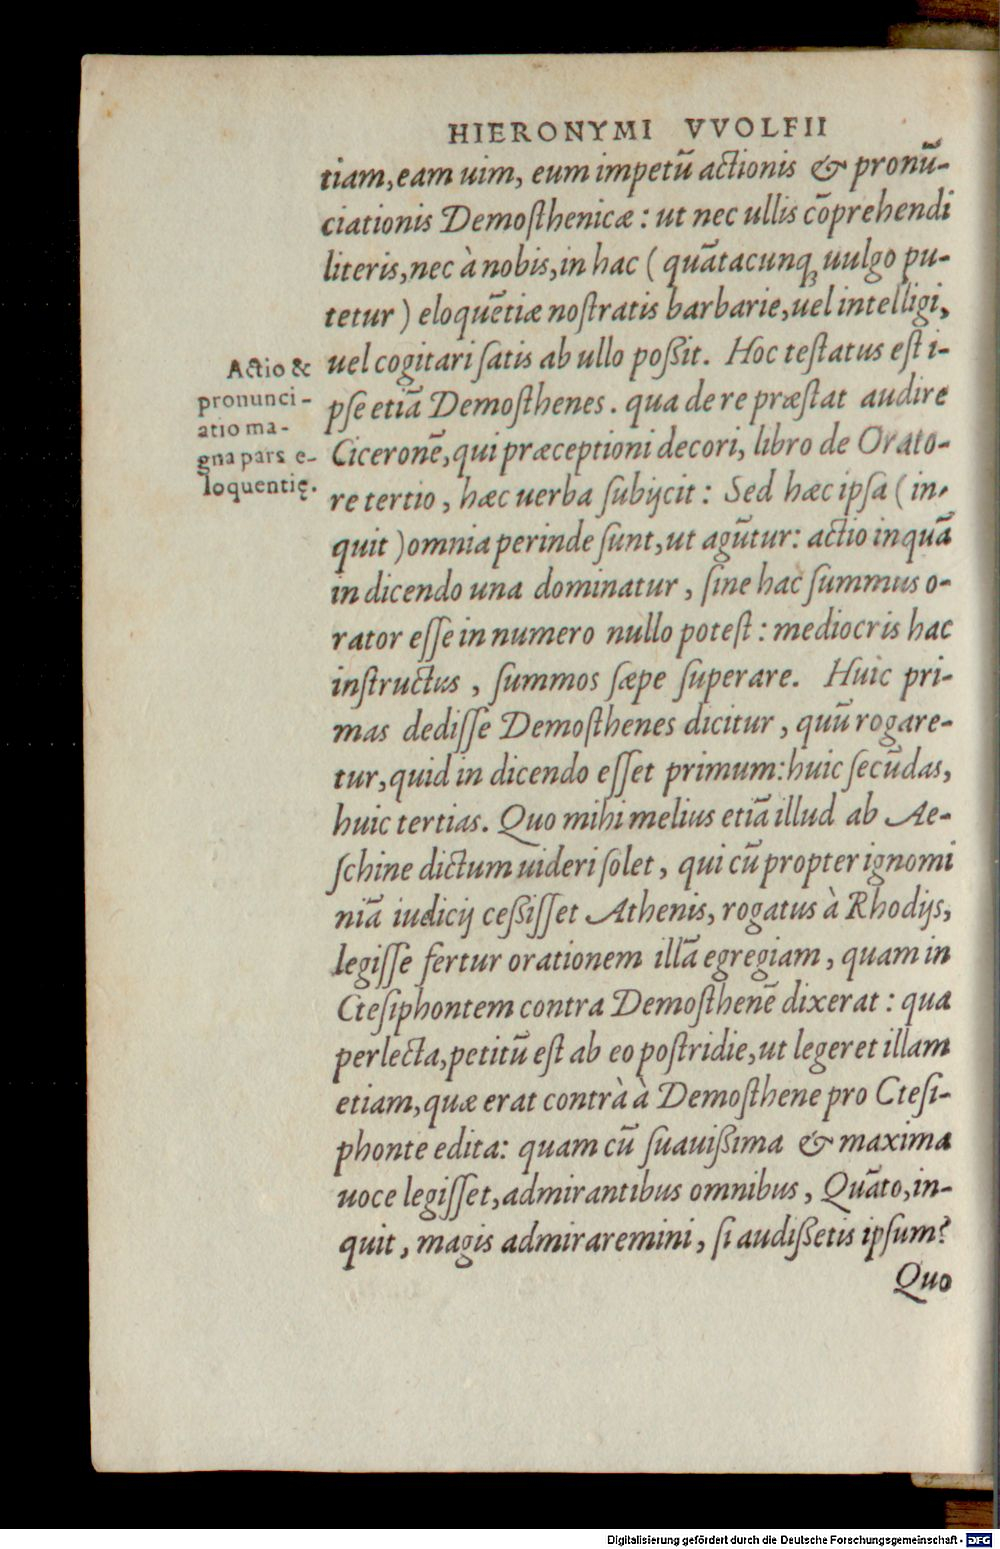 HIERONYMI VVOLFII
tiam, eam uim, eum impetū actionis & pronū-
ciationis Demosthenicæ: ut nec ullis cōprehendi
literis, nec à nobis, in hac ( quātacunq; uulgo pu-
tetur ) eloquētiæ nostratis barbarie, uel intelligi,
uel cogitari satis ab ullo poßit. Hoc testatus est i-
pse etiā Demosthenes. qua de re præstat audire
Ciceronē, qui præceptioni decori, libro de Orato-
re tertio, hæc uerba subijcit: Sed hæc ipsa ( in-
quit ) omnia perinde sunt, ut agūtur: actio inquā
in dicendo una dominatur, sine hac summus o-
rator esse in numero nullo potest: mediocris hac
instructus, summos sæpe superare. Huic pri-
mas dedisse Demosthenes dicitur, quū rogare-
tur, quid in dicendo esset primum: huic secūdas,
huic tertias. Quo mihi melius etiā illud ab Ae-
schine dictum uideri solet, qui cū propter ignomi
niā iudicij ceßisset Athenis, rogatus à Rhodijs,
legisse fertur orationem illā egregiam, quam in
Ctesiphontem contra Demosthenē dixerat: qua
perlecta, petitū est ab eo postridie, ut legeret illam
etiam, quæ erat contrà à Demosthene pro Ctesi-
phonte edita: quam cū suauißima & maxima
uoce legisset, admirantibus omnibus, Quāto, in-
quit, magis admiraremini, si audißetis ipsum?
Quo
Actio &
pronunci-
atio ma-
gna pars e-
loquentię.
Digitalisierung gefördert durch die Deutsche Forschungsgemeinschaft - DFG